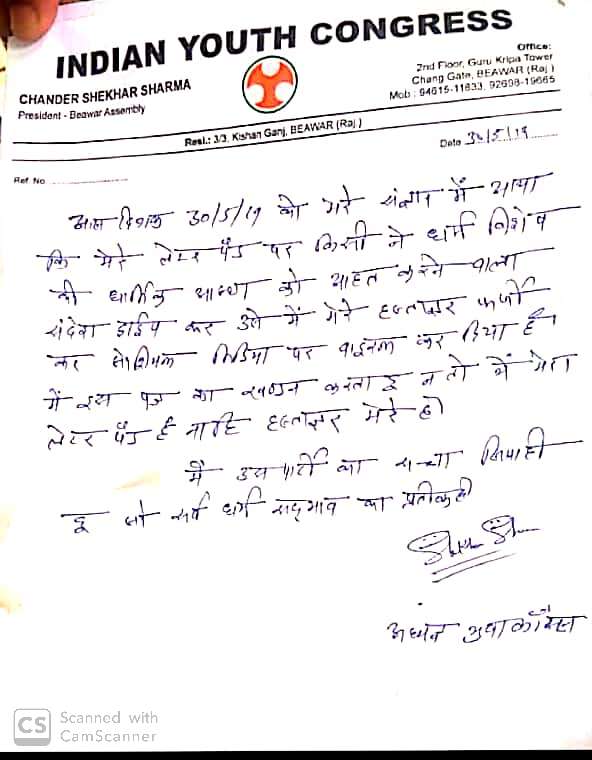 INDIAN YOUTH CONGRESS
CHANDER SHEKHAR SHARMA
President - Beawar Assembly
Office:
2nd Floor, Guru Kripa Tower
Chang Gate, BEAWAR (Raj.)
Mob : 94615-11633, 92698-19665
Resi.: 3/3, Kishan Ganj, BEAWAR (Raj.)
Date 30/5/19
Ref. No.
आज दिनांक 30/5/19 को मेरे संज्ञान में आया
कि मेरे लेटर पैड पर किसी ने धर्म विशेष
की धार्मिक आस्था को आहत करने वाला
संदेश टाईप कर उसमें मेरे हस्ताक्षर फर्जी
कर सोशियल मिडिया पर वाईरल कर दिया है।
में इस पत्र का खण्डन करता हू न तो ये मेरा
लेटर पैड है नाहि हस्ताक्षर मेरे है।
मैं उस पार्टी का सच्चा सिपाही
हू जो सर्व धर्म सद्भाव का प्रतीक है।
अध्यक्ष युवा कॉंग्रेस
CS Scanned with
CamScanner